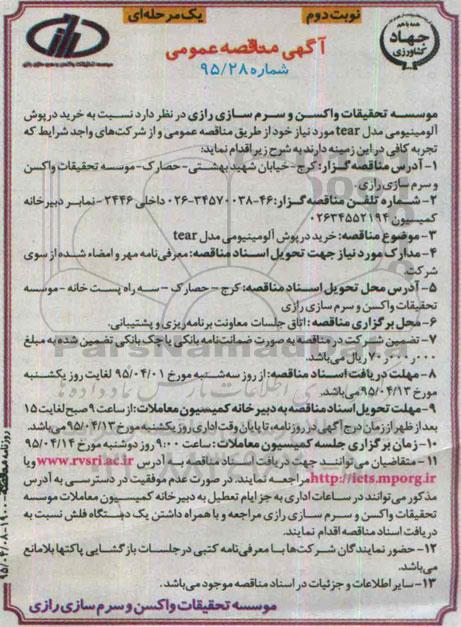 نوبت دوم
یک مرحله‌ای
همه با هم
جهاد
کشاورزی
رازی
موسسه تحقیقات واکسن و سرم سازی رازی
آگهی مناقصه عمومی
شماره ۹۵/۲۸
موسسه تحقیقات واکسن و سرم سازی رازی در نظر دارد نسبت به خرید درپوش
آلومینیومی مدل tear مورد نیاز خود از طریق مناقصه عمومی و از شرکت‌های واجد شرایط که
تجربه کافی در این زمینه دارند به شرح زیر اقدام نماید:
۱- آدرس مناقصه گزار: کرج- خیابان شهید بهشتی- حصارک- موسسه تحقیقات واکسن
و سرم سازی رازی.
۲- شماره تلفن مناقصه گزار: ۴۶-۳۴۵۷۰۰۳۸-۰۲۶ داخلی ۲۴۴۶ - نمابر دبیرخانه
کمیسیون ۰۲۶۳۴۵۵۲۱۹۴
۳- موضوع مناقصه: خرید درپوش آلومینیومی مدل tear
۴- مدارک مورد نیاز جهت تحویل اسناد مناقصه: معرفی‌نامه مهر و امضاء شده از سوی
شرکت.
۵- آدرس محل تحویل اسناد مناقصه: کرج - حصارک - سه راه پست خانه - موسسه
تحقیقات واکسن و سرم سازی رازی
۶- محل برگزاری مناقصه: اتاق جلسات معاونت برنامه‌ریزی و پشتیبانی.
۷- تضمین شرکت در مناقصه به صورت ضمانت‌نامه بانکی یا چک بانکی تضمین شده به مبلغ
۷۰/۰۰۰/۰۰۰ ریال می‌باشد.
۸- مهلت دریافت اسناد مناقصه: از روز سه‌شنبه مورخ ۹۵/۰۴/۰۱ لغایت روز یکشنبه
مورخ ۹۵/۰۴/۱۳ می‌باشد.
۹- مهلت تحویل اسناد مناقصه به دبیرخانه کمیسیون معاملات: از ساعت ۹ صبح لغایت ۱۵
بعد از ظهر از زمان درج آگهی در روزنامه، تا پایان وقت اداری روز یکشنبه مورخ ۹۵/۰۴/۱۳ می‌باشد.
۱۰- زمان برگزاری جلسه کمیسیون معاملات: ساعت ۹:۰۰ روز دوشنبه مورخ ۹۵/۰۴/۱۴
۱۱- متقاضیان می‌توانند جهت دریافت اسناد مناقصه به آدرس www.rvsri.ac.ir و یا
http://iets.mporg.ir مراجعه نمایند. در صورت عدم موفقیت در دسترسی به آدرس
مذکور می‌توانند در ساعات اداری به جز ایام تعطیل به دبیرخانه کمیسیون معاملات موسسه
تحقیقات واکسن و سرم سازی رازی مراجعه و با همراه داشتن یک دستگاه فلش نسبت به
دریافت اسناد مناقصه اقدام نمایند.
۱۲- حضور نمایندگان شرکت‌ها با معرفی‌نامه کتبی در جلسات بازگشایی پاکتها بلامانع
می‌باشد.
۱۳- سایر اطلاعات و جزئیات در اسناد مناقصه موجود می‌باشد.
موسسه تحقیقات واکسن و سرم سازی رازی
روزنامه مناقصه ۱۹۰۰-۹۵/۰۴/۰۸
ParsNamadData